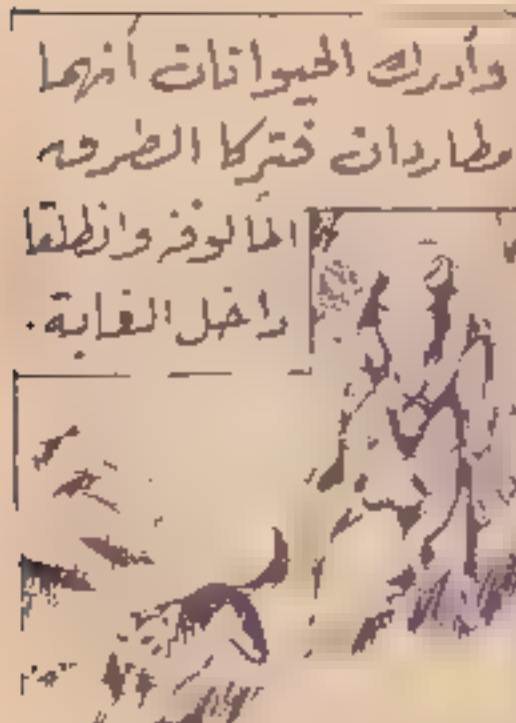 وأدرك الحيوانات أنهما
مطاردان فتركا الطرق
المألوفة وانطلقا
داخل الغابة.